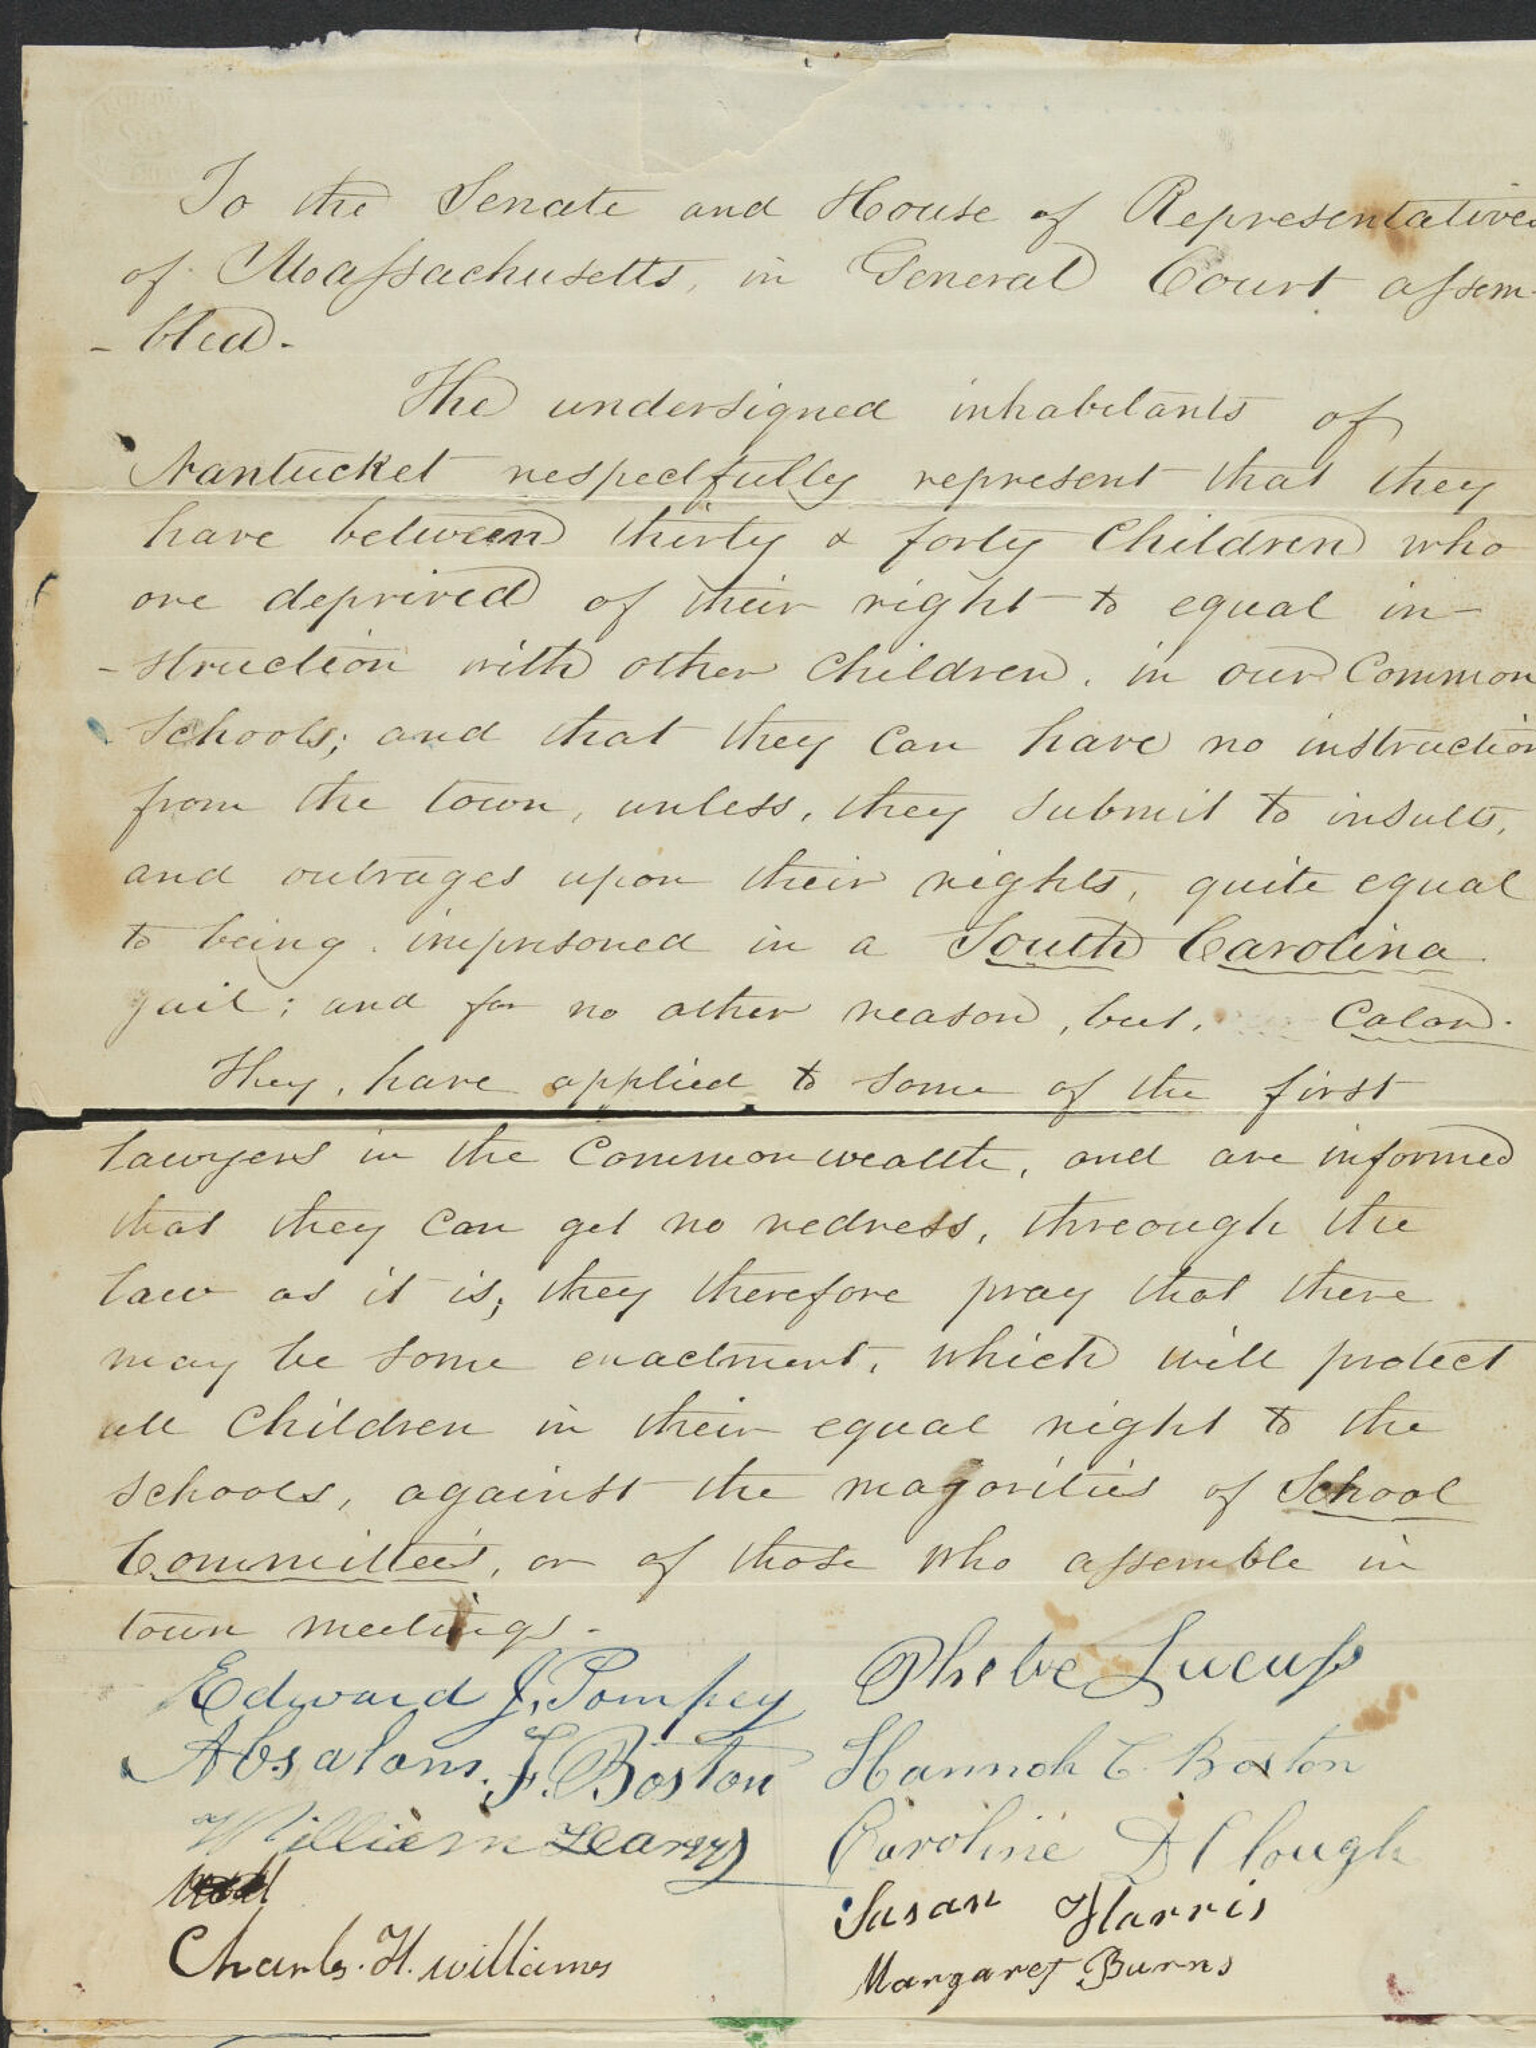 To the Senate and House of Representatives
of Massachusetts, in General Court assem-
-bled-
The undersigned inhabitants of
Nantucket respectfully represent that they
have between thirty & forty Children who
are deprived of their right to equal in-
-struction with other Children, in our Common
Schools; and that they can have no instruction
from the town, unless, they submit to insults,
and outrages upon their rights, quite equal
to being imprisoned in a South Carolina
jail; and for no other reason, but, Color.
They, have applied to some of the first
lawyers in the Commonwealth, and are informed
that they can get no redress, threough the
law as it is; they therefore pray that there
may be some enactment, which will protect
all Children in their equal right to the
schools, against the majorities of School
Committees, or of those who assemble in
town meetings.-
Edward J. Pompey
Absalom. F. Boston
William Harris
Charls. H. williams
Phebe Lucus
Hannah C. Boston
Caroline D Clough
Susan Harris
Margaret Burns